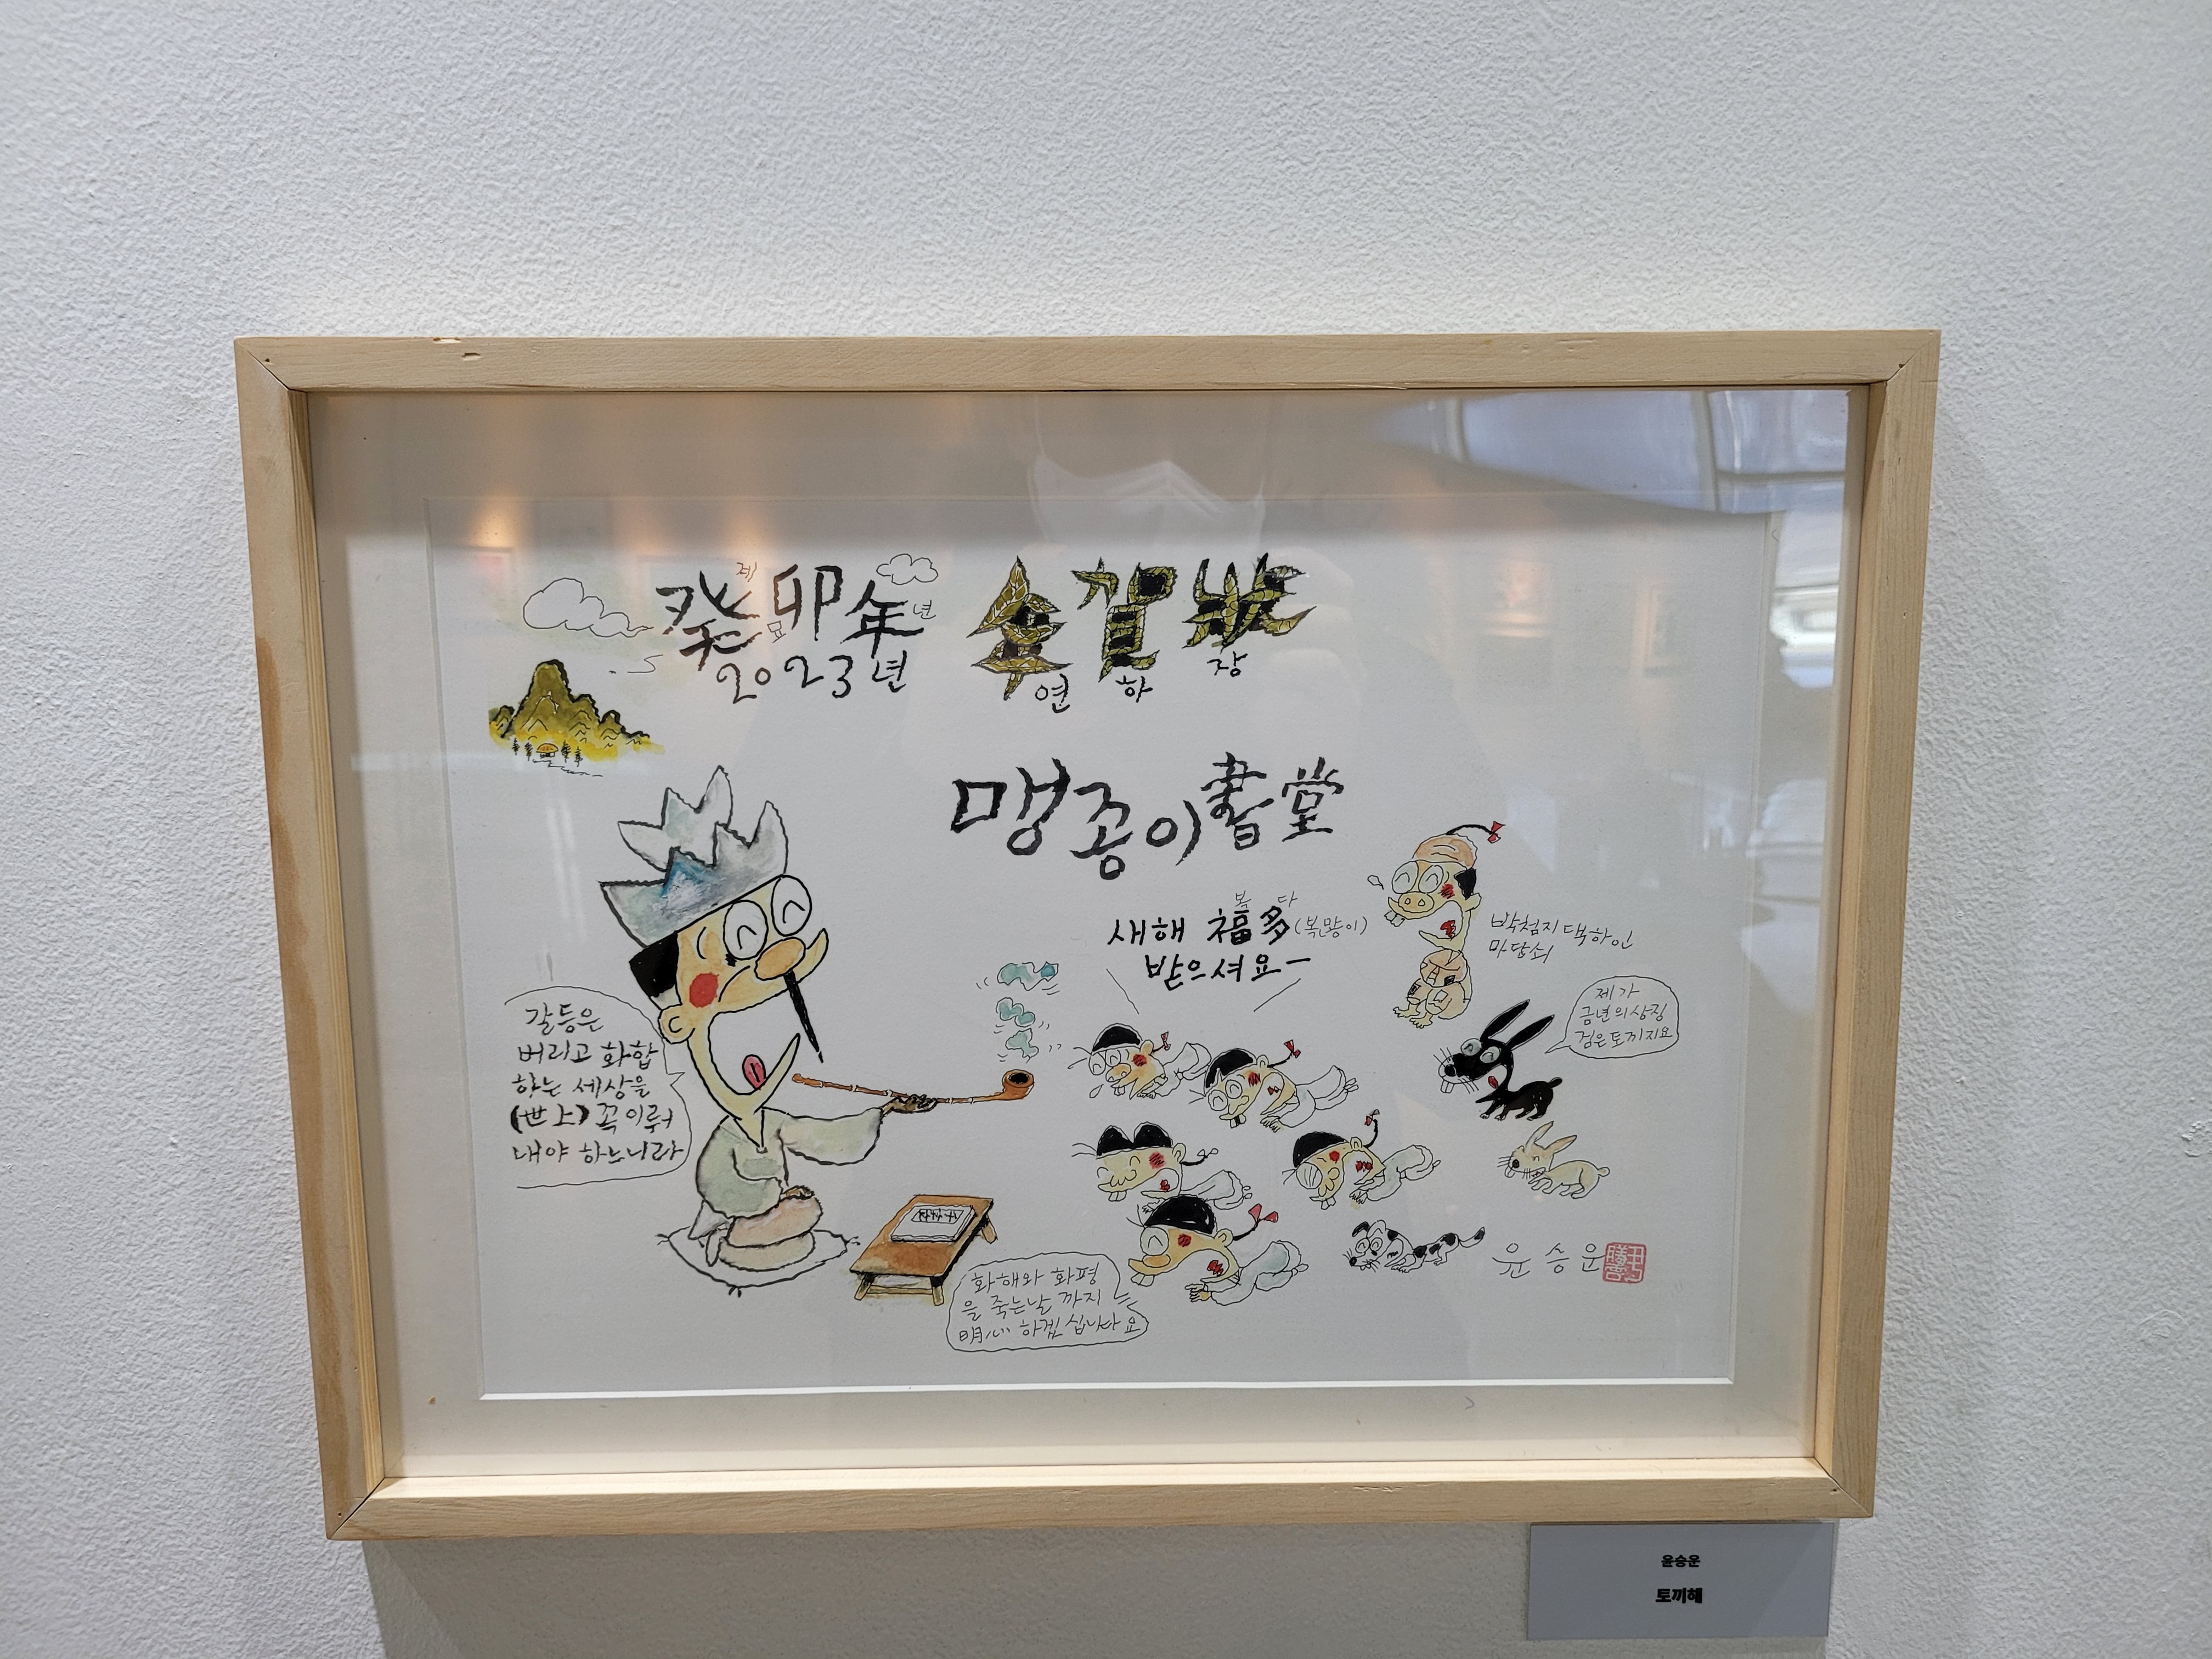 癸卯年
계묘년
2023년
年賀狀
연하장
맹꽁이書堂
새해 福多(복많이)
복다
받으셔요ー
박첨지댁하인
마당쇠
제가
금년의상징
검은토끼지요
갈등은
버리고 화합
하는 세상을
(世上) 꼭 이뤄
내야 하느니라
화해와 화평
을 죽는날 까지
明心 하겠십니다요
윤승운
윤승운
토끼해